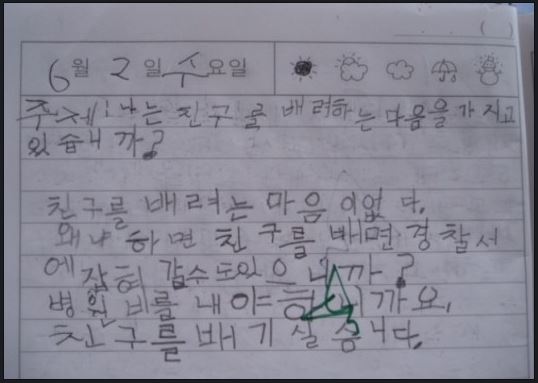 6월 2일 수요일
주제: 나는 친구를 배려하는 마음을 가지고
있습니까?
친구를 배려는 마음이없다.
왜냐하면 친구를 배면 경찰서
에 잡혀갈수도있으니까?
병원비를 내야하니까요.
친구를 배기 실습니다.